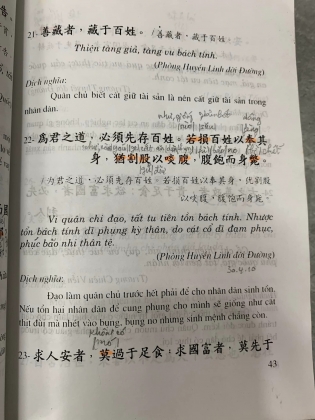 21- 善藏者，藏于百姓。(善藏者，藏于百姓
Thiện tàng giả, tàng vu bách tính.
(Phòng Huyền Linh đời Đường)
Dịch nghĩa:
Quân chủ biết cất giữ tài sản là nên cất giữ tài sản trong
nhân dân.
22- 為君之道，必須先存百姓。若損百姓以奉其
身，猶割股以啖腹，腹飽而身斃。
(为君之道，必须先存百姓。若损百姓以奉其身，犹割股
以啖腹，腹饱而身毙。
Vi quân chi đạo, tất tu tiên tồn bách tính. Nhược
tổn bách tính dĩ phụng kỳ thân, do cát cổ dĩ đạm phục,
phục bão nhi thân tệ.
(Phòng Huyền Linh đời Đường)
Dịch nghĩa:
Đạo làm quân chủ trước hết phải để cho nhân dân sinh tồn.
Nếu tổn hại nhân dân để cung phụng cho mình sẽ giống như cắt
thịt đùi mà nhét vào bụng, bụng no nhưng sinh mệnh chẳng còn.
23- 求人安者，莫過于足食；求國富者，莫先于
43